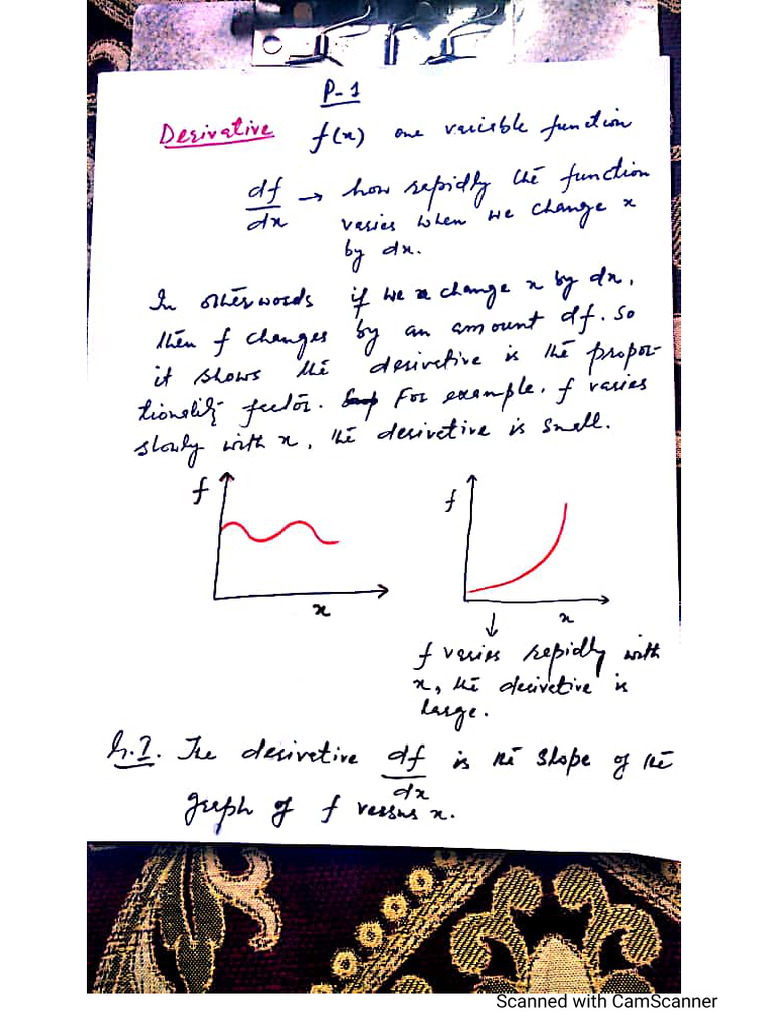 P-1
Derivative f(x) one variable function
df/dx → how rapidly the function
varies when we change x
by dx.
In otherwords if we change x by dx,
then f changes by an amount df. So
it shows the derivative is the propor-
tionality factor. For example, f varies
slowly with x, the derivative is small.
f
x
f
x
↓
f varies rapidly with
x, the derivative is
large.
G.I. The derivative df/dx is the slope of the
graph of f versus x.
Scanned with CamScanner